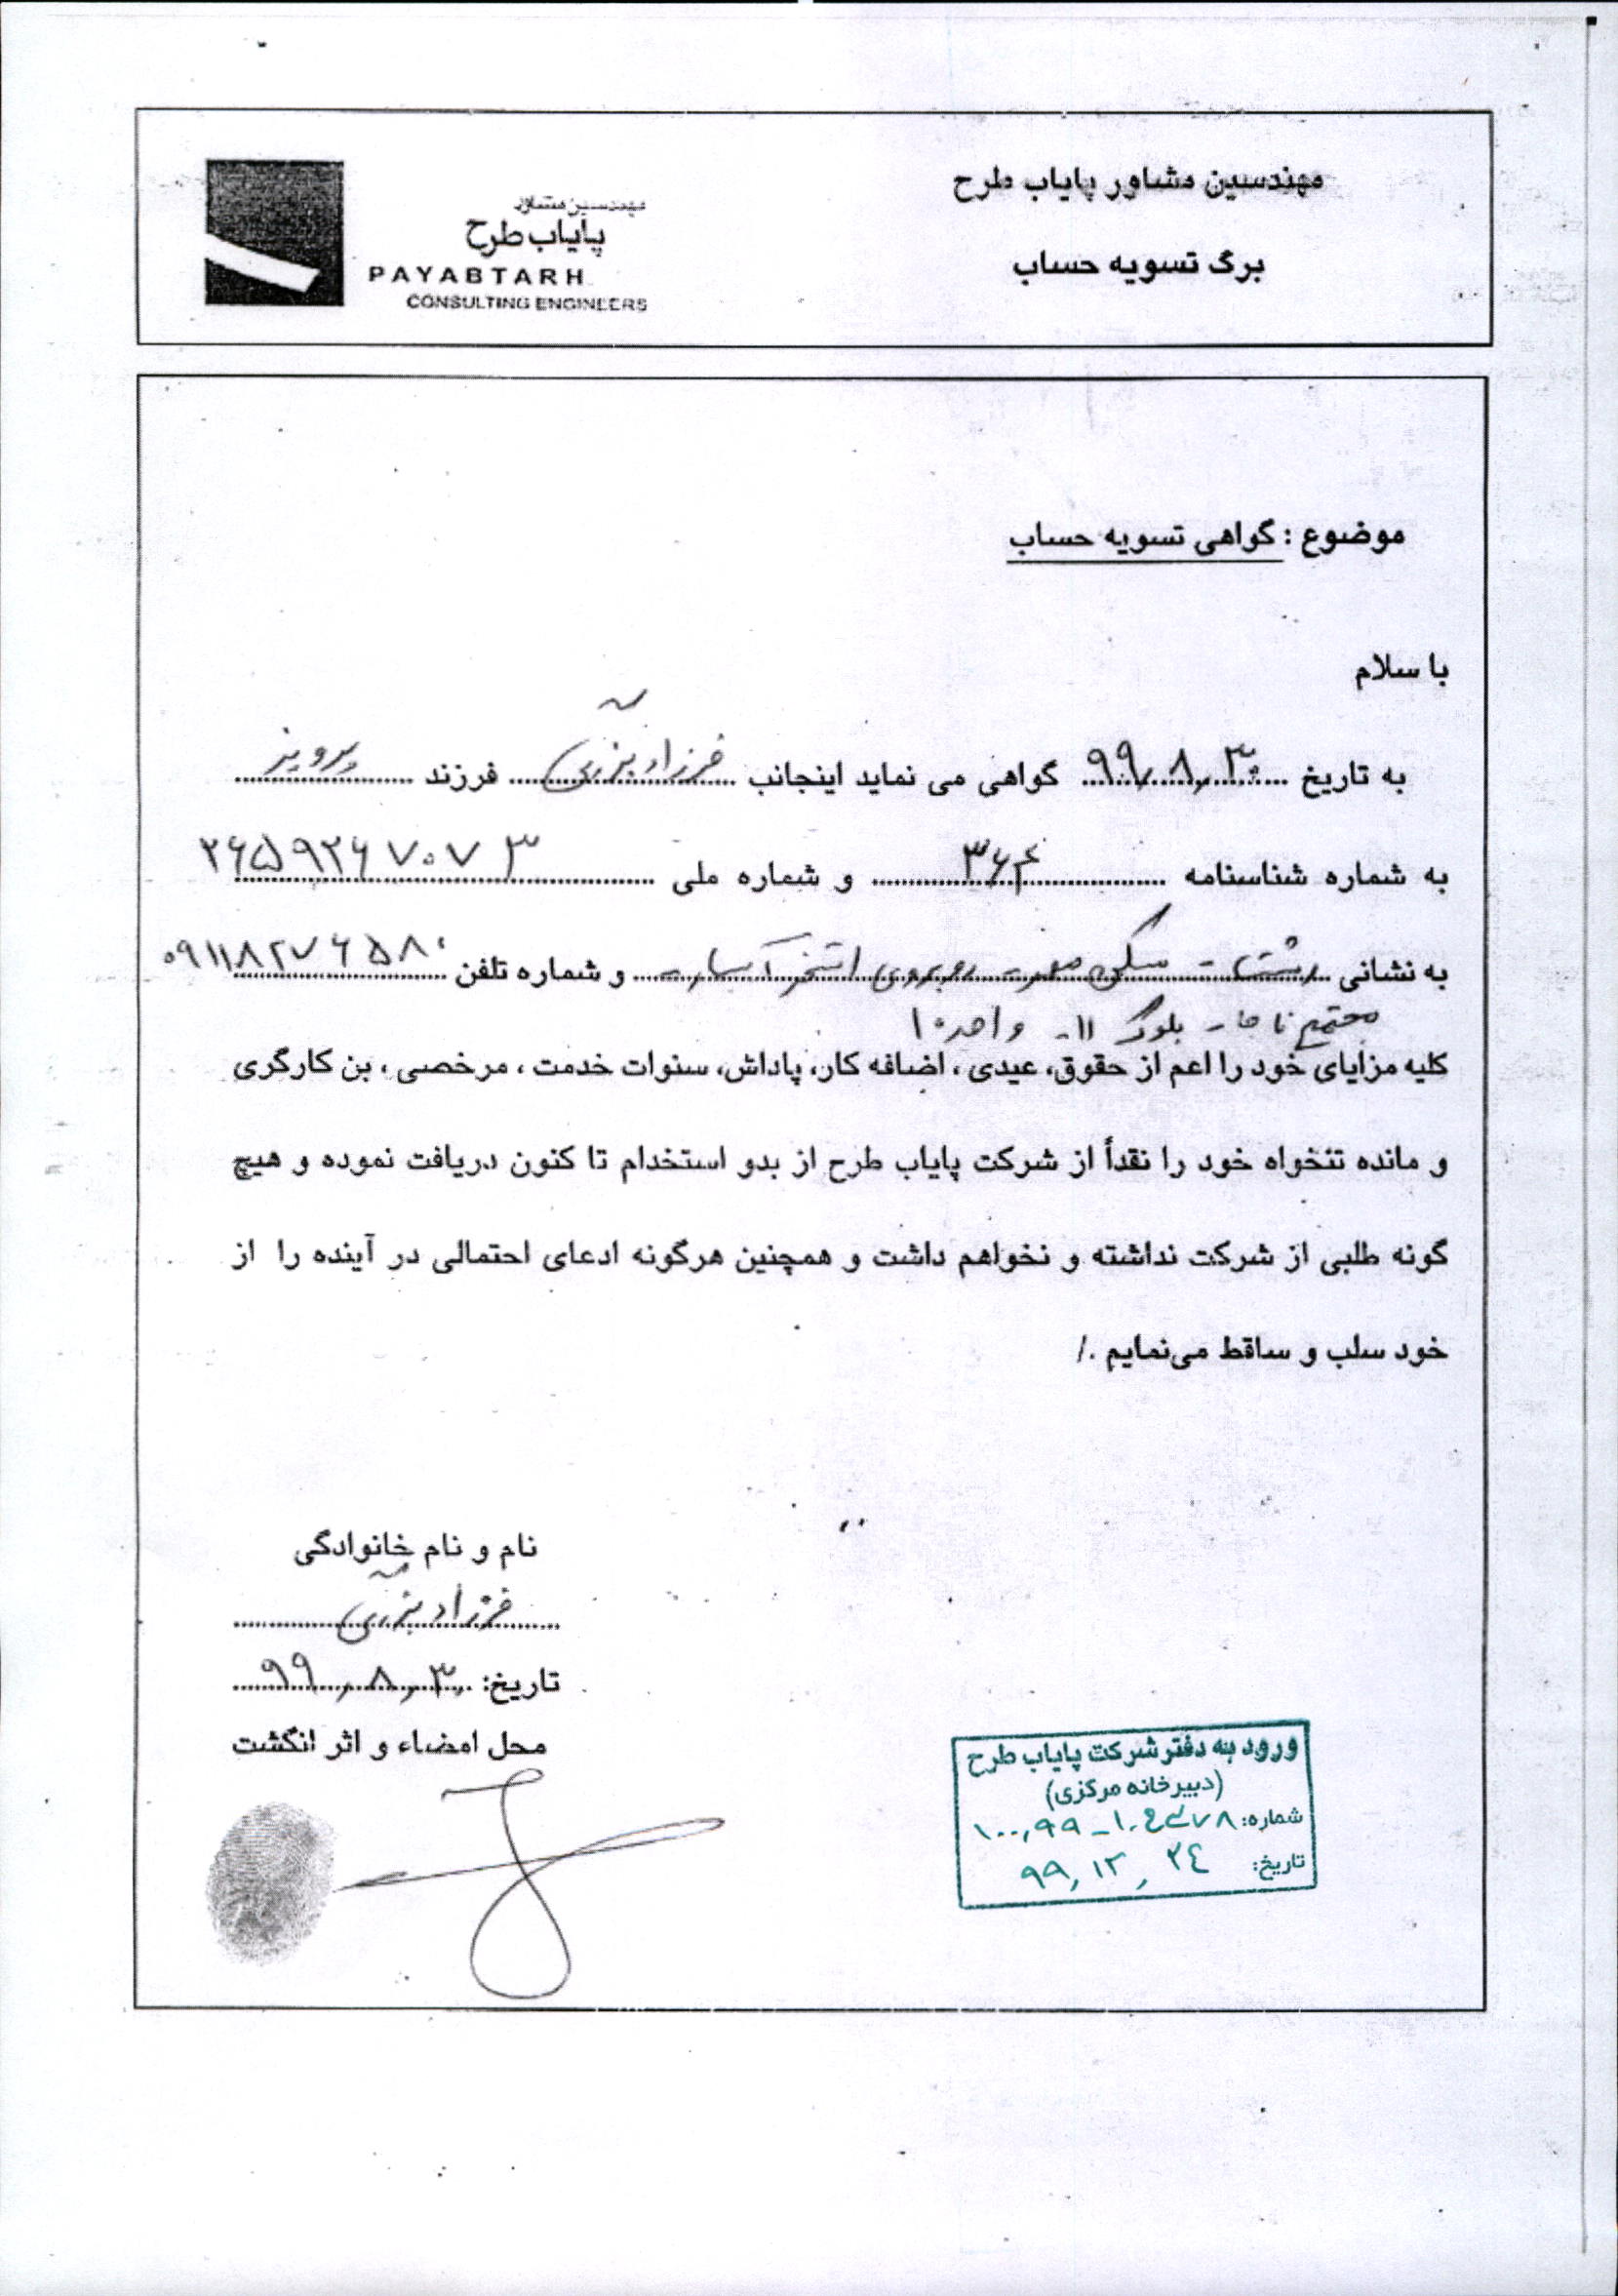 مهندسین مشاور پایاب طرح
برگ تسویه حساب
مهندسین مشاور
پایاب طرح
PAYABTARH
CONSULTING ENGINEERS
موضوع : گواهی تسویه حساب
با سلام
به تاریخ ۹۹,۸,۳۰ گواهی می نماید اینجانب فرزاد فرزند پرویز
به شماره شناسنامه ۳۶۴ و شماره ملی ۲۶۵۹۲۶۷۰۷۳
به نشانی رشت - مسکن مهر - روبروی استخر و شماره تلفن ۰۹۱۱۸۲۷۶۵۸۰
مجتمع - بلوک ۱۱ - واحد ۱۰
کلیه مزایای خود را اعم از حقوق، عیدی ، اضافه کار، پاداش، سنوات خدمت ، مرخصی ، بن کارگری
و مانده تنخواه خود را نقداً از شرکت پایاب طرح از بدو استخدام تا کنون دریافت نموده و هیچ
گونه طلبی از شرکت نداشته و نخواهم داشت و همچنین هرگونه ادعای احتمالی در آینده را از
خود سلب و ساقط می‌نمایم ./
نام و نام خانوادگی
فرزاد
تاریخ: ۹۹,۸,۳۰
محل امضاء و اثر انگشت
ورود به دفتر شرکت پایاب طرح
(دبیرخانه مرکزی)
شماره:
تاریخ: ۹۹,۱۲,۲۴